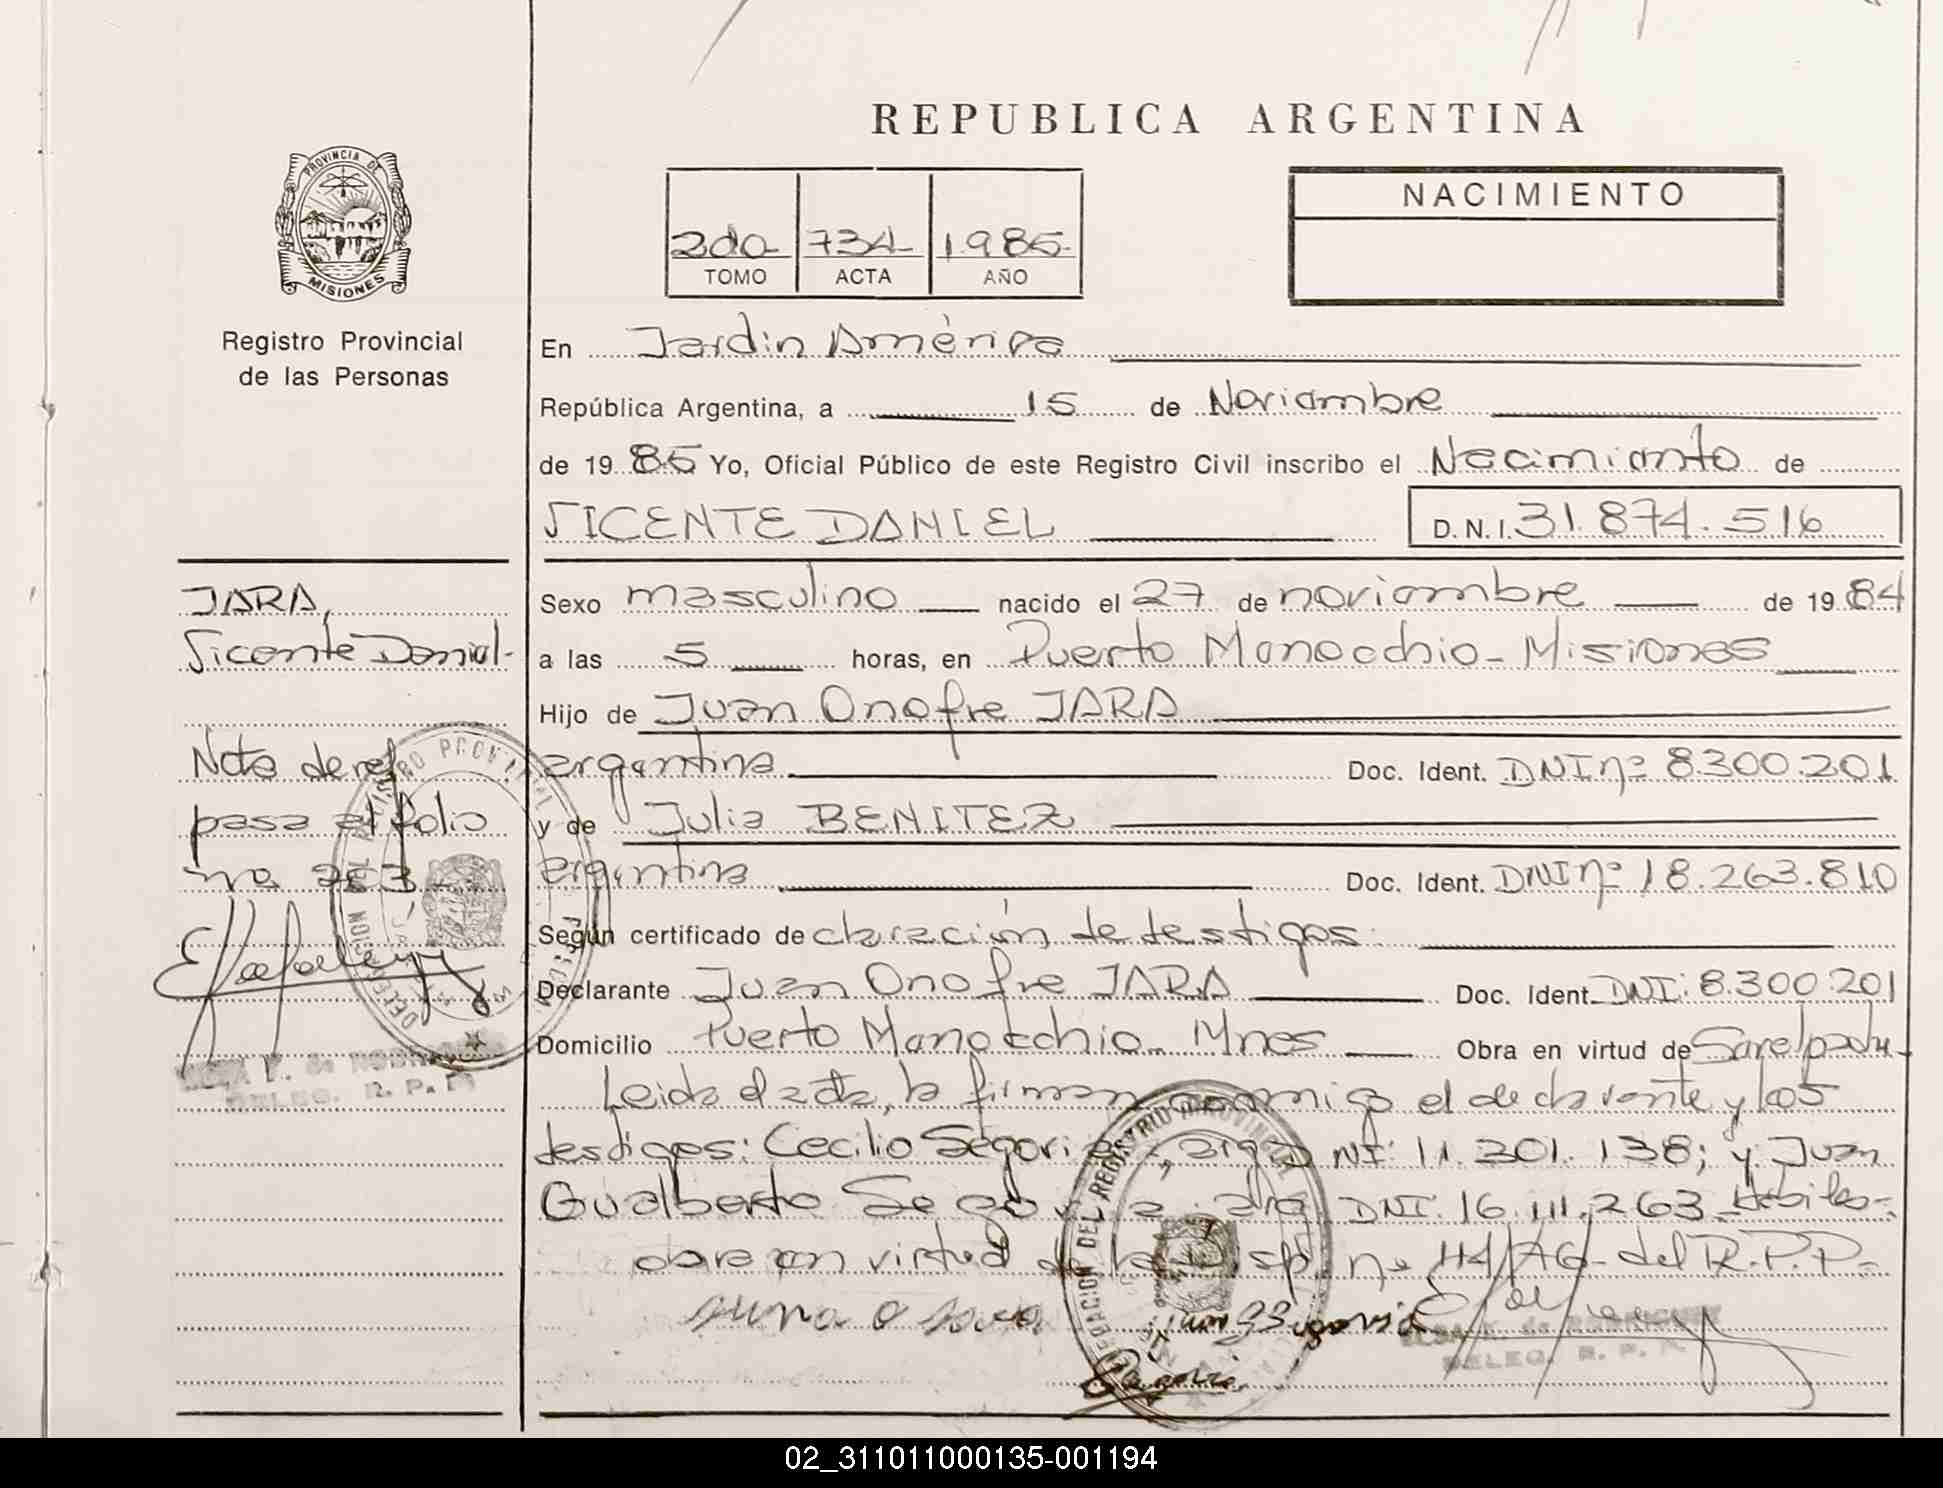 REPUBLICA ARGENTINA
PROVINCIA DE
MISIONES
Registro Provincial
de las Personas
2do 734 1985
TOMO ACTA AÑO
NACIMIENTO
En Jardín América
República Argentina, a 15 de Noviembre
de 1985 Yo, Oficial Público de este Registro Civil inscribo el Nacimiento de
VICENTE DANIEL D.N.I. 31.874.516
JARA,
Vicente Daniel-
Nota de ref
pasa al folio
Sexo masculino nacido el 27 de noviembre de 1984
a las 5 horas, en Puerto Manocchio-Misiones
Hijo de Juan Onofre JARA
argentina Doc. Ident. DNI nº 8.300.201
y de Julia BENITEZ
argentina Doc. Ident. DNI nº 18.263.810
Según certificado declaración de testigos.
Declarante Juan Onofre JARA Doc. Ident. DNI: 8.300.201
Domicilio Puerto Manocchio-Mnes Obra en virtud de
Leida el acta, la firman conmigo el declarante y los
testigos: Cecilio Segovia, arg. DNI: 11.301.138; y Juan
Gualberto Segovia, arg. DNI: 16.111.263
obra en virtud de la Disp. nº 114/76-del R.P.P.-
DELEG. R. P. P.
02_311011000135-001194